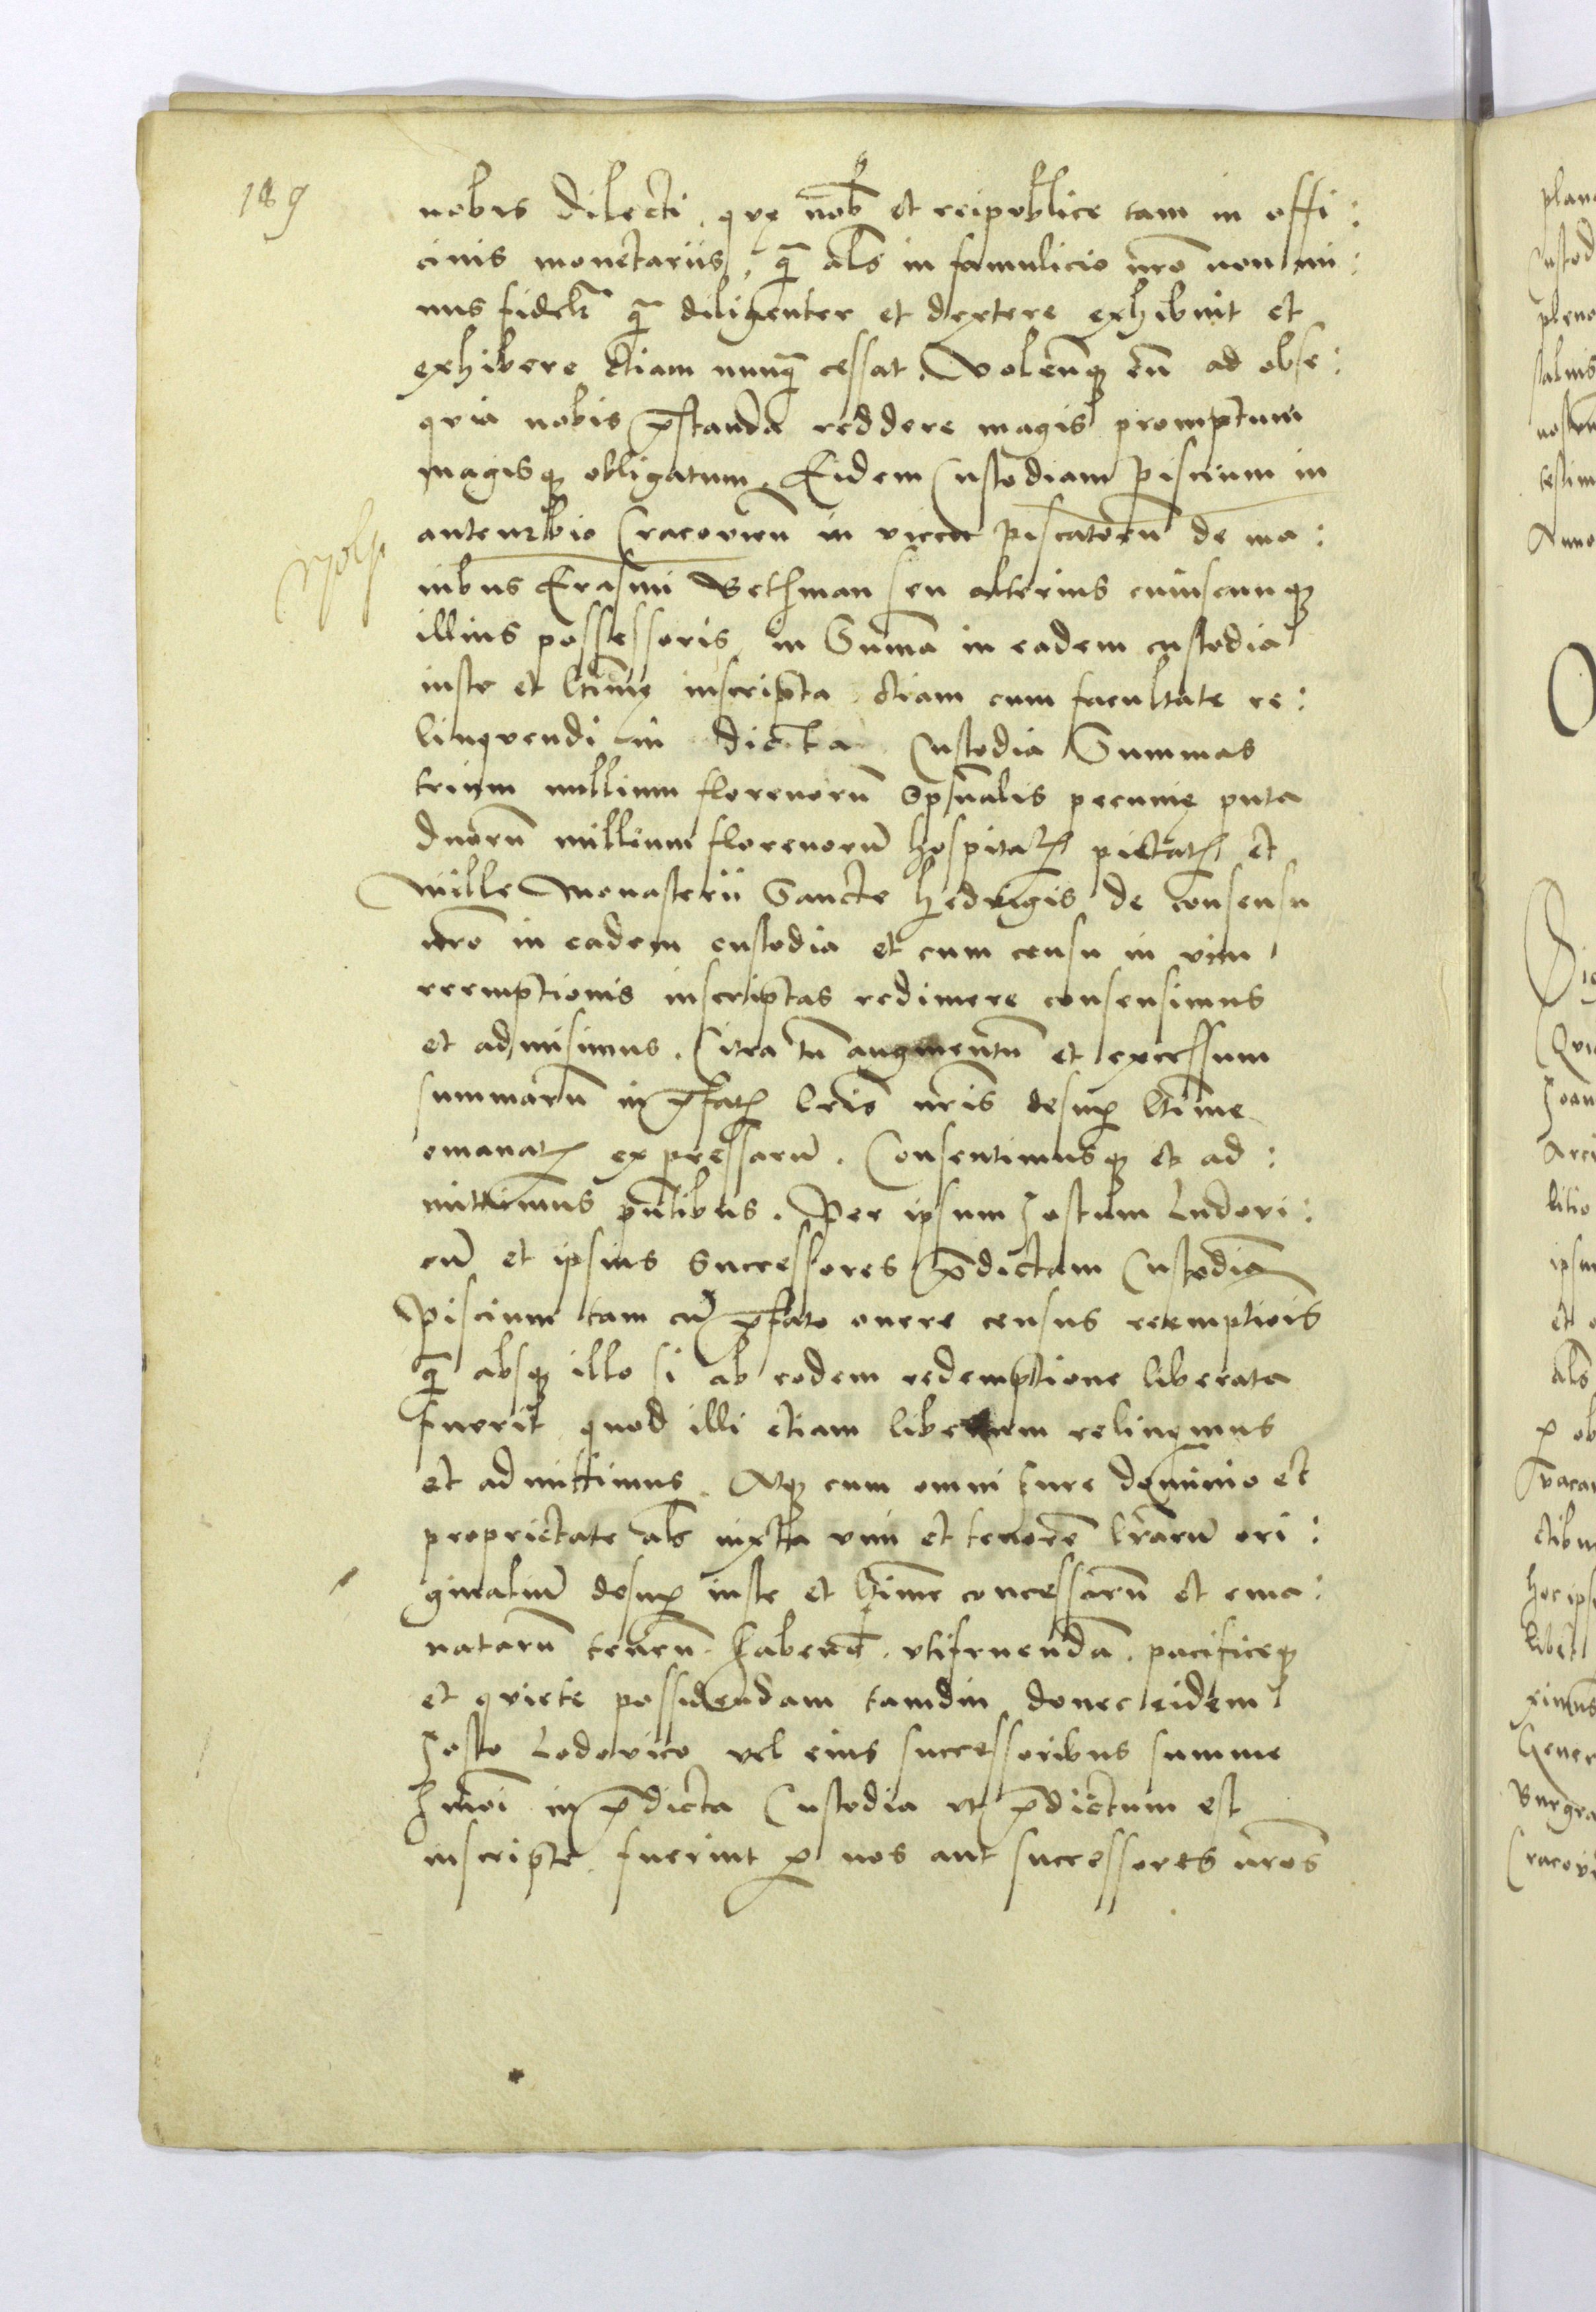 189
nobis dilecti, que nob et reipublice tam in offi:
cinis monetariis, q̃ als in famulicio nr̃o non mi:
nus fidelr̃ q̃ diligenter et dextere exhibuit et
exhibere etiam nunq̃ cessat. Volenq; eũ ad obse:
quia nobis p̃standa reddere magis promptum
magisq; obligatum. Eidem Custodiam piscium in
anteurbio Cracovieñ in vicco piscatorũ de ma:
nibus Erasmi Bethman seu alterius cuiuscunq;
illius possessoris, in Summa in eadem custodia
iuste et ltime inscripta etiam cum facultate re:
linquendi in dicta Custodia Summas
trium millium florenorũ Spũalis pecunie puta
duorũ millium florenorũ hospitaľ pietatꝭ et
Mille Monasterii Sancte Hedvigis de consensu
nr̃o in eadem custodia et cum censu in vim
reemptionis inscriptas redimere consensimus
et admisimus. Citra tñ augmentũ et excessum
summarũ in p̃fatꝭ lr̃is nr̃is desup ltime
emanatꝭ expressarũ. Consentimusq; et ad:
mittimus p̃ntibus. Per ipsum Jostum Ludovi:
cũ et ipsius Successores p̃dictam Custodiã
piscium tam cũ p̃fato onere census reemptiois
q̃ absq; illo si ab eodem redemptione liberata
fuerit quod illi etiam liberum relinqmus
et admittimus. Atq; cum omni iure dominio et
proprietate als iuxta vim et tenorẽ lr̃arũ ori:
ginaliũ desup iuste et ltime concessarũ et ema:
natarũ teneñ. habeñd. utifruendã. pacificeq;
et quiete possidendam tamdiu donec eidem
Josto Lodovico vel eius successoribus summe
hmõi in p̃dicta Custodia ut p̃dictum est
inscripte fuerint p nos aut successores nr̃os